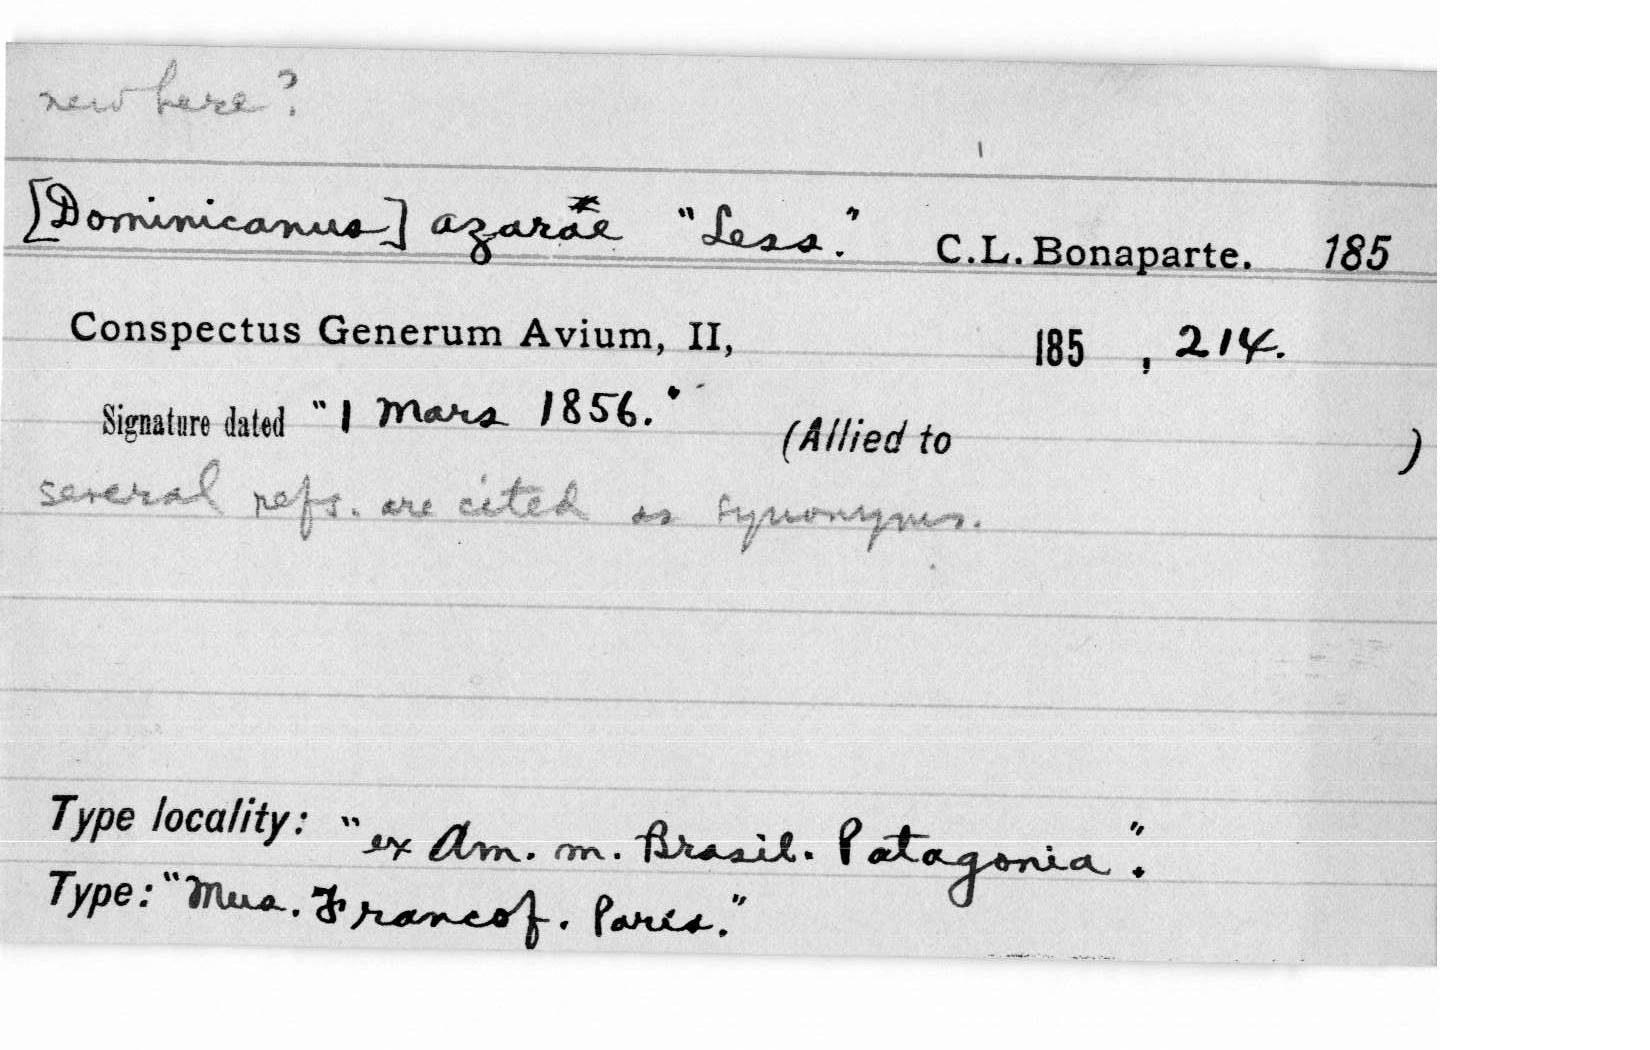 new here?
[Dominicanus] azarae "Less." C.L. Bonaparte. 185
Conspectus Generum Avium, II, 185 , 214.
Signature dated "1 Mars 1856." (Allied to )
several refs. are cited as synonyms.
Type locality: "ex Am. m. Brasil. Patagonia".
Type: "Mus. Francof. Paris."